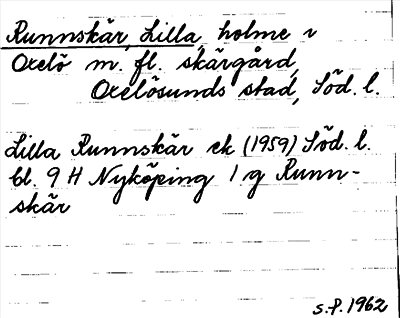 Runnskär, Lilla, holme v
Oxelö m. fl. skärgård,
Oxelösunds stad, Söd. l.
Lilla Runnskär ek (1959) Söd. l.
bl. 9 H Nyköping 1 g Runn-
skär
S.P. 1962